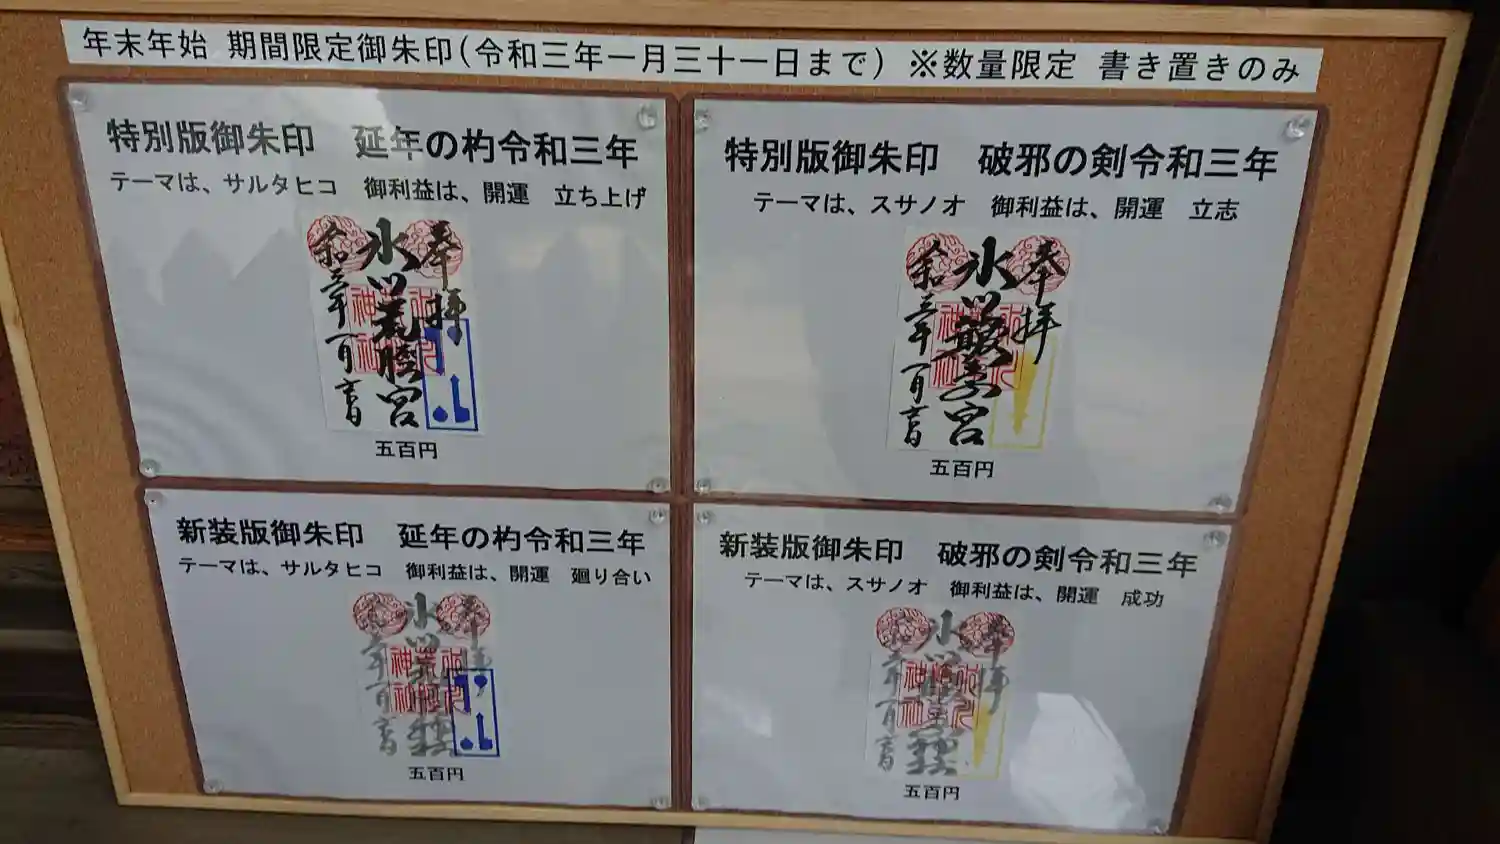 年末年始 期間限定御朱印(令和三年一月三十一日まで) ※数量限定 書き置きのみ
特別版御朱印 延年の杓令和三年
テーマは、サルタヒコ 御利益は、開運 立ち上げ
奉拝
五百円
特別版御朱印 破邪の剣令和三年
テーマは、スサノオ 御利益は、開運 立志
奉拝
五百円
新装版御朱印 延年の杓令和三年
テーマは、サルタヒコ 御利益は、開運 廻り合い
奉拝
五百円
新装版御朱印 破邪の剣令和三年
テーマは、スサノオ 御利益は、開運 成功
奉拝
五百円